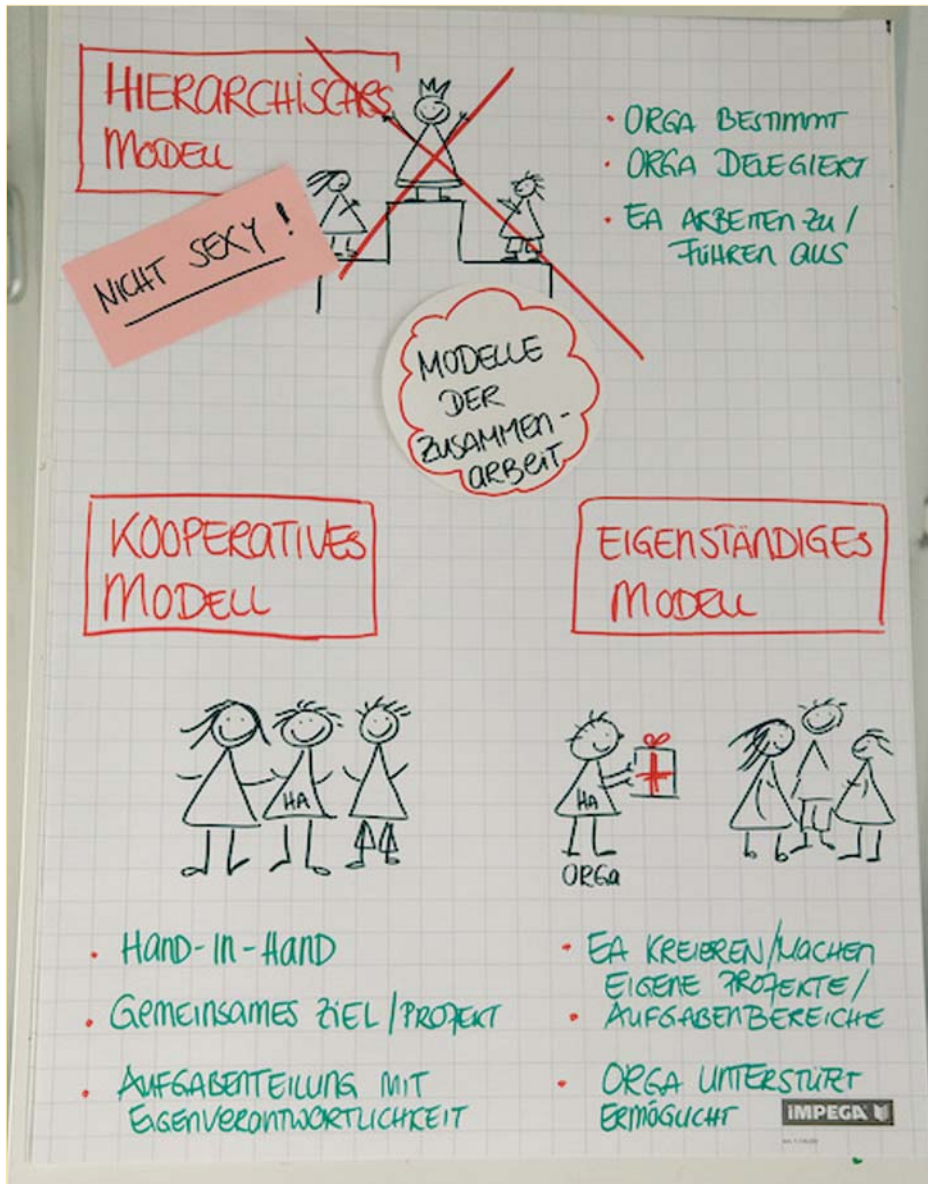 HIERARCHISCHES
MODELL
NICHT SEXY!
• ORGA BESTIMMT
• ORGA DELEGIERT
• EA ARBEITEN ZU /
FÜHREN AUS
MODELLE
DER
ZUSAMMEN-
ARBEIT
KOOPERATIVES
MODELL
HA
• HAND-IN-HAND
• GEMEINSAMES ZIEL/PROJEKT
• AUFGABENTEILUNG MIT
EIGENVERANTWORTLICHKEIT
EIGENSTÄNDIGES
MODELL
HA
ORGA
• EA KREIEREN/MACHEN
EIGENE PROJEKTE/
• AUFGABENBEREICHE
• ORGA UNTERSTÜTZT
ERMÖGLICHT
IMPEGA